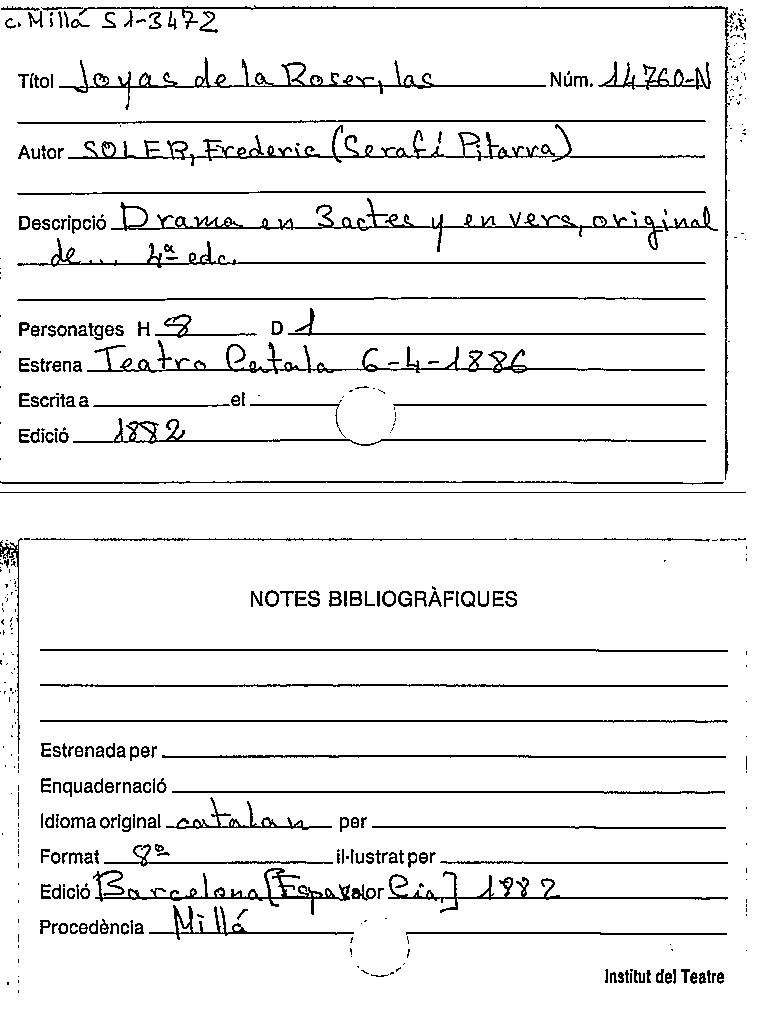 c. Millá S1-3472
Títol Joyas de la Roser, las Núm. 14760-N
Autor SOLER, Frederic (Serafí Pitarra)
Descripció Drama en 3 actes y en vers, original
de... 4ª edc.
Personatges H 8 D 1
Estrena Teatro Catala 6-4-1886
Escrita a el
Edició 1882
NOTES BIBLIOGRÀFIQUES
Estrenada per
Enquadernació
Idioma original catalan per
Format 8º il·lustrat per
Edició Barcelona [ Cia,] 1882
Procedència Millá
Institut del Teatre